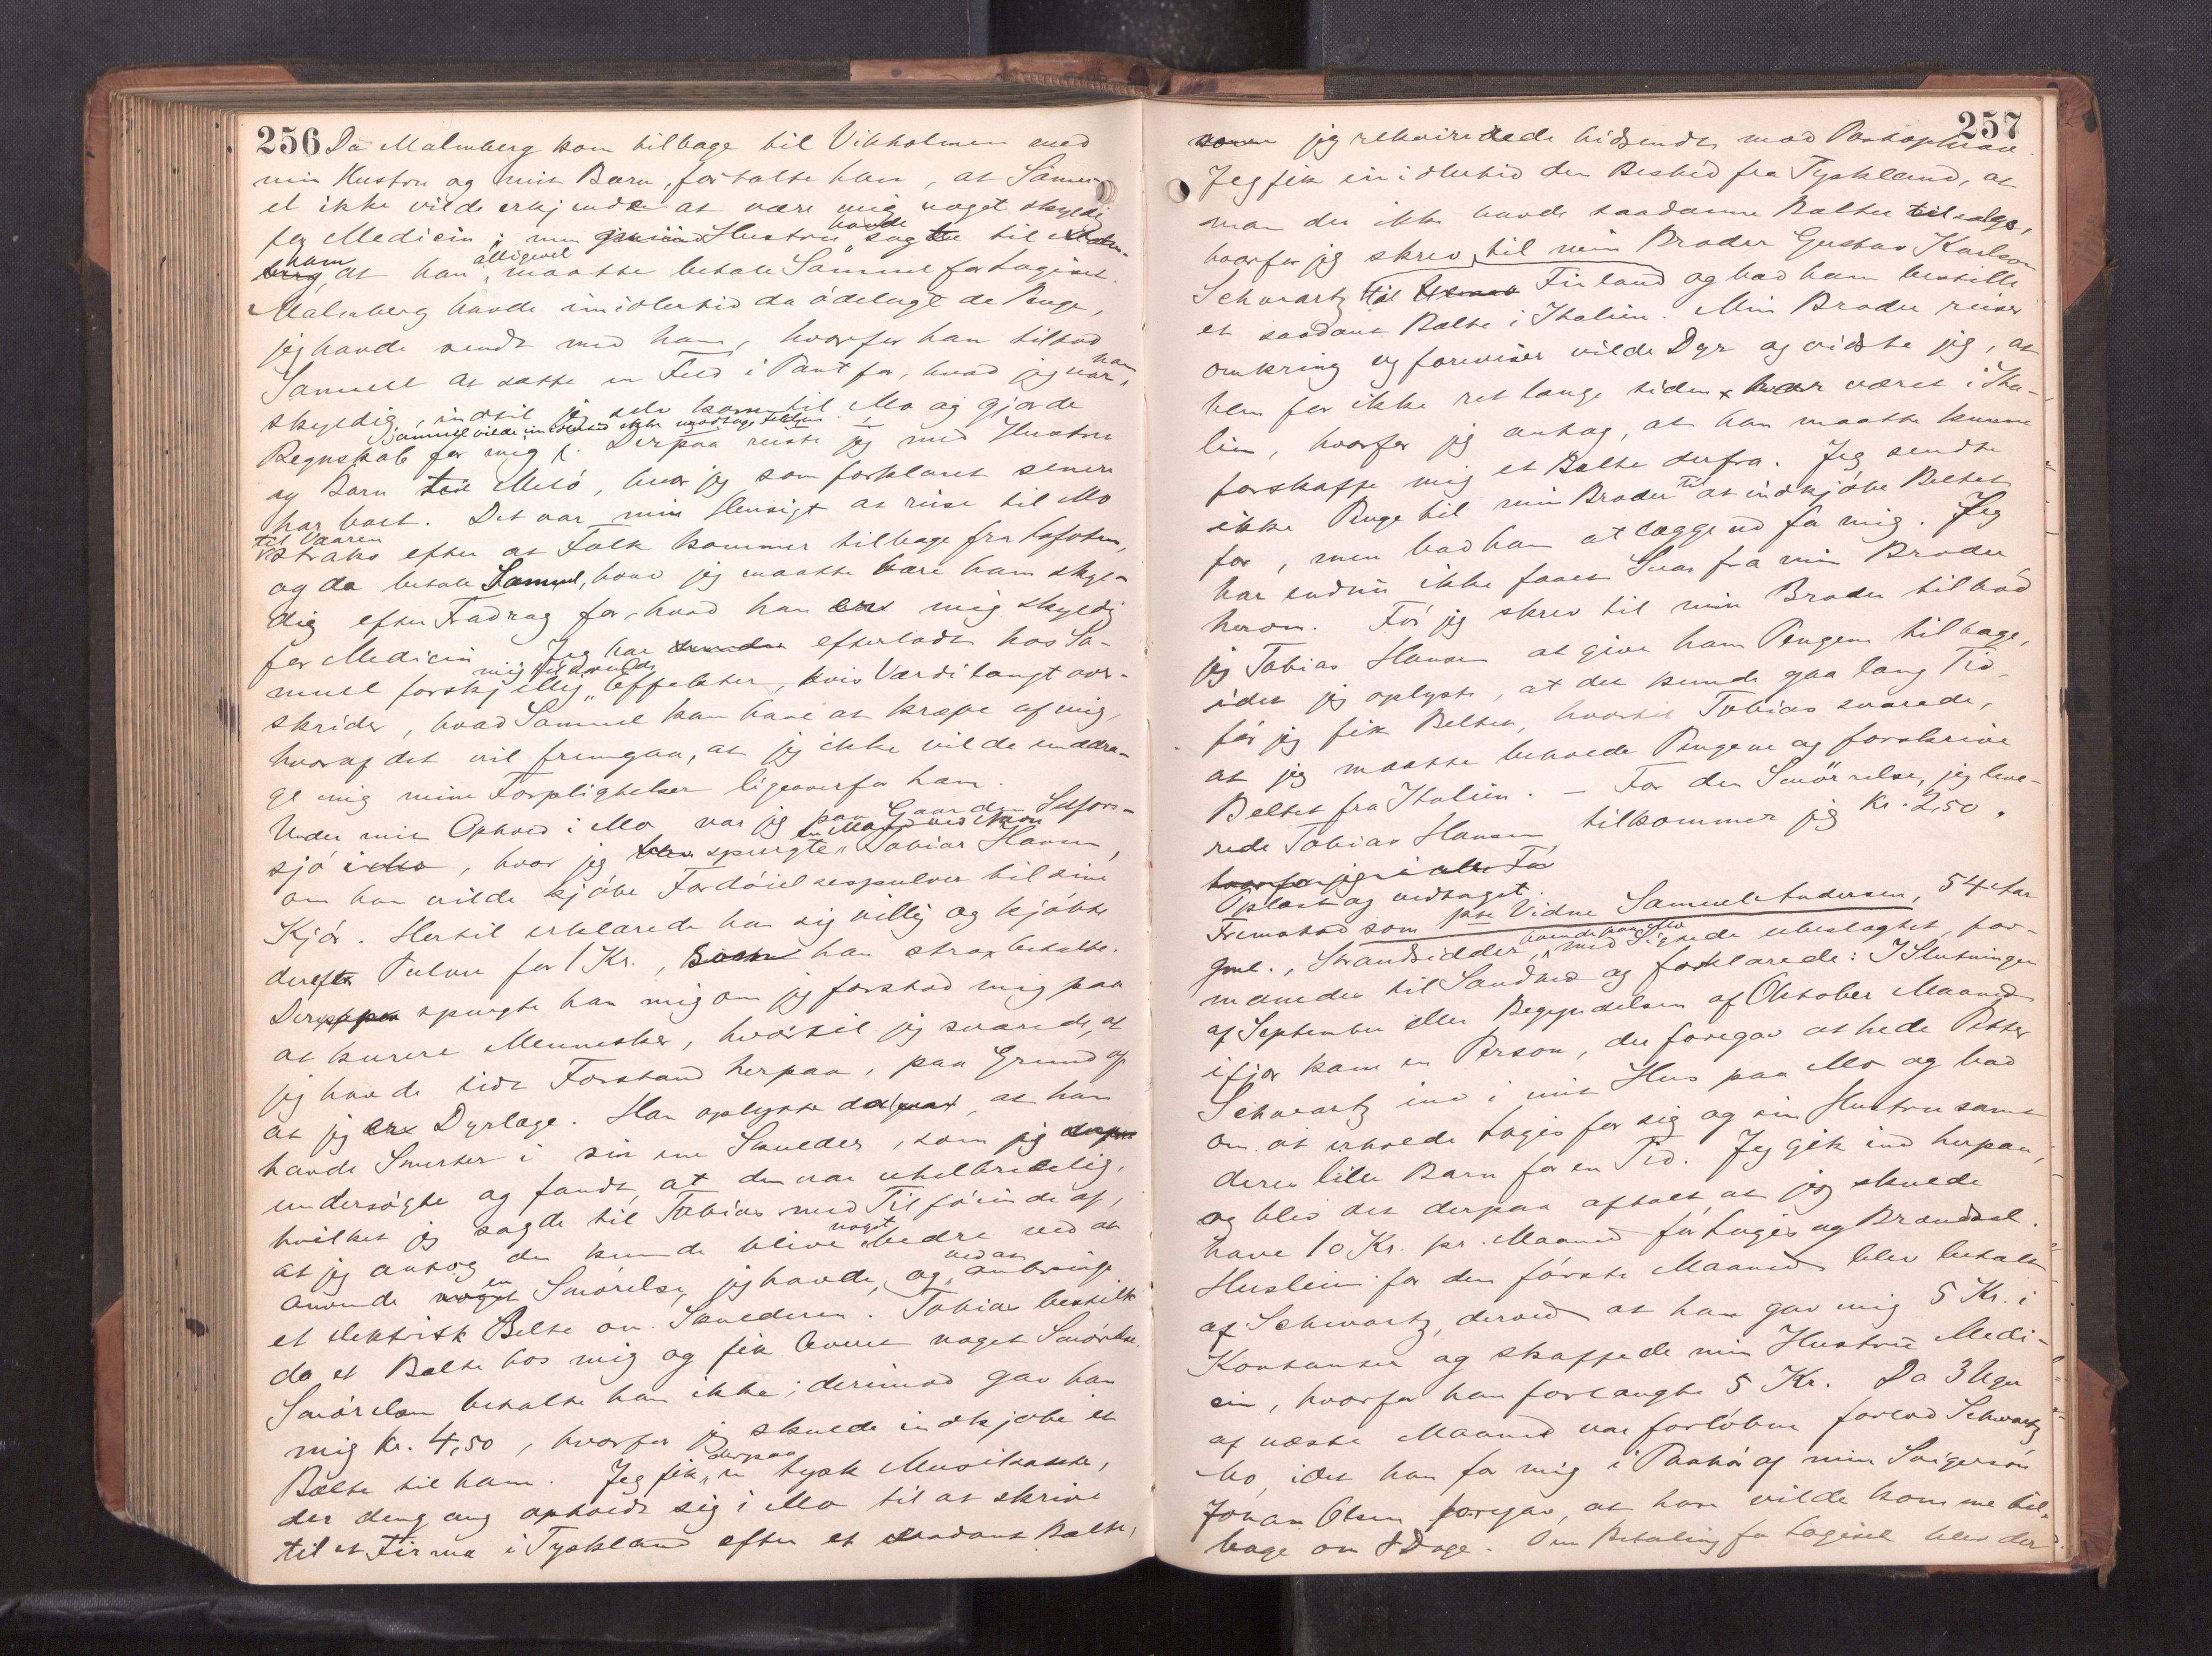 256 Da Malmberg kom tilbage til Vikholmen med
min Hustru og mit Barn, fortalte han, at Samu-
el ikke vilde erkjende at være mig noget skyldig
for Medicin; men Hustru havde sagt til
ham, at han alligevel maatte betale Samuel for Logiset.
Malmberg havde imidlertid da ödelagt de Penge,
jeg havde sendt med ham, hvorfor han tilbød
Samuel at sætte en Fed i Pant for, hvad jeg var ham
skyldig, indtil jeg selv kom til Mo og gjorde
Samuel vilde imidlertid ikke modtage
Regnskab for mig. Derpaa reiste jeg med Hustru
og Barn til Melö, hvor jeg som forklaret senere
har boet. Det var min Hensigt at reise til Mo
til Vaaren
straks efter at Folk kommer tilbage fra Lofoten,
og da betale Samuel, hvad jeg maatte være ham skyl-
dig efter Fradrag for, hvad han er mig skyldig
for Medicin. Jeg har efterladt hos Sa-
muel forskjellig mig tilhørende Effekter, hvis Værdi langt over-
skrider, hvad Samuel kan have at kræve af mig,
hvoraf det vil fremgaa, at jeg ikke vilde unddra-
ge mig mine Forpligtelser ligeoverfor ham.
Under mit Ophold i Mo var jeg paa Gaarden Selfors-
sjö i Mo, hvor jeg blev spurgte en Mand ved Navn Tobias Hansen,
om han vilde kjöbe Fordöielsespulver til sine
Kjör. Hertil erklærede han sig villig og kjöbte
derefter Pulver for 1 Kr., som han strax betalte.
Derpaa spurgte han mig om jeg forstod mig paa
at kurere Mennesker, hvortil jeg svarede, at
jeg havde lidt Forstand herpaa, paa Grund af
at jeg er Dyrlæge. Han oplyste da, at han
havde Smerter i sin ene Skulder, som jeg
undersögte og fandt, at den var uhelbredelig,
hvilket jeg sagde til Tobias med Tilföiende af,
at jeg antog den kunde blive noget bedre ved at
anvende en Smörelse, jeg havde, og ved at anbringe
et elektrisk Belte om Skulderen. Tobias bestilte
da et Belte hos mig og fik leveret noget Smörelse.
Smörelsen betalte han ikke; derimod gav han
mig Kr. 4,50, hvorfor jeg skulde indkjøbe et
Belte til ham. Jeg fik derpaa en tysk Musikant,
der dengang opholdt sig i Mo til at skrive
til et Firma i Tyskland efter et saadant Belte,
257
som jeg rekvirerede hidsendt mod Postopkrav.
Jeg fik imidlertid den Besked fra Tyskland, at
man der ikke havde saadanne Belter tilsalgs,
hvorfor jeg skrev til min Broder Gustav Karlson
Schwartz til Finland og bad ham bestille
et saadant Belte i Italien. Min Broder reiser
omkring og foreviser vilde Dyr og vidste jeg, at
han for ikke ret længe siden havde været i Ita-
lien, hvorfor jeg antog, at han maatte kunne
forskaffe mig et Belte derfra. Jeg sendte
ikke Penge til min Broder til at indkjöbe Beltet
for, men bad ham at lægge ud for mig. Jeg
har endnu ikke faaet Svar fra min Broder
herom. För jeg skrev til min Broder tilböd
jeg Tobias Hansen at give ham Pengene tilbage,
idet jeg oplyste, at det kunde gaa lang Tid,
för jeg fik Beltet, hvortil Tobias svarede,
at jeg maatte beholde Pengene og forskrive
Beltet fra Italien. – For den Smörrelse, jeg leve-
rede Tobias Hansen, tilkommer jeg Kr. 2,50.
hvorfor jeg i alt Far
Oplæst og vedtaget.
Fremstod som 1ste Vidne Samuel Andersen, 54 Aar
gml., Strandsidder, boende paa Mo med Signede ubeslægtet, for-
manedes til Sandhed og forklarede: I Slutningen
af September eller Begyndelsen af Oktober Maaned
ifjor kom en Person, der foregav at hede Petter
Schwartz ind i mit Hus paa Mo og bad
om at erholde Logis for sig og sin Hustru samt
deres lille Barn for en Tid. Jeg gik ind herpaa,
og blev det derpaa aftalt, at jeg skulde
have 10 Kr. pr. Maaned for Logis og Brændsel.
Husleien for den förste Maaned blev betalt
af Schwartz, derved at han gav mig 5 Kr. i
Kontanter og skaffede min Hustru Medi-
cin, hvorfor han forlangte 5 Kr. Da 3 Uger
af næste Maaned var forløbne forlod Schwartz
Mo, idet han for mig i Paahör af min Svigersön
Johan Olsen foregav, at han vilde komme til-
bage om 8 Dage. Om Betaling for Logiset blev der